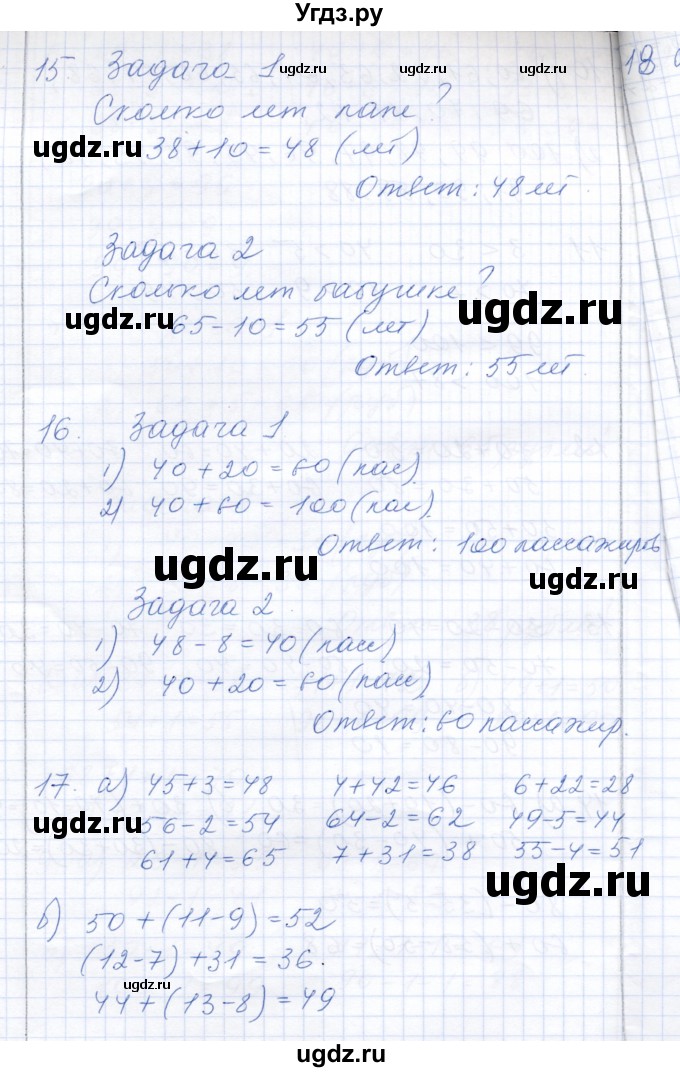 Угдз.ру
15. Задача 1 ugdz.ru ugdz.ru 18
Сколько лет папе?
ugdz.ru 38+10=48 (лет)
Ответ: 48 лет.
Задача 2
Сколько лет бабушке?
ugdz.ru 65-10=55 (лет) ugdz.ru
Ответ: 55 лет.
16. Задача 1
1) 40+20=60 (пас)
2) 40+60=100 (пас).
Ответ: 100 пассажиров
ugdz.ru ugdz.ru
Задача 2.
1) 48-8=40 (пасс)
2) 40+20=60 (пасс)
Ответ: 60 пассажир.
17. а) 45+3=48 4+42=46 6+22=28
ugdz.ru 56-2=54 64-2=62 49-5=44
61+4=65 7+31=38 55-4=51
ugdz.ru
б) 50+(11-9)=52
(12-7)+31=36.
ugdz.ru
44+(13-8)=49
ugdz.ru
ugdz.ru